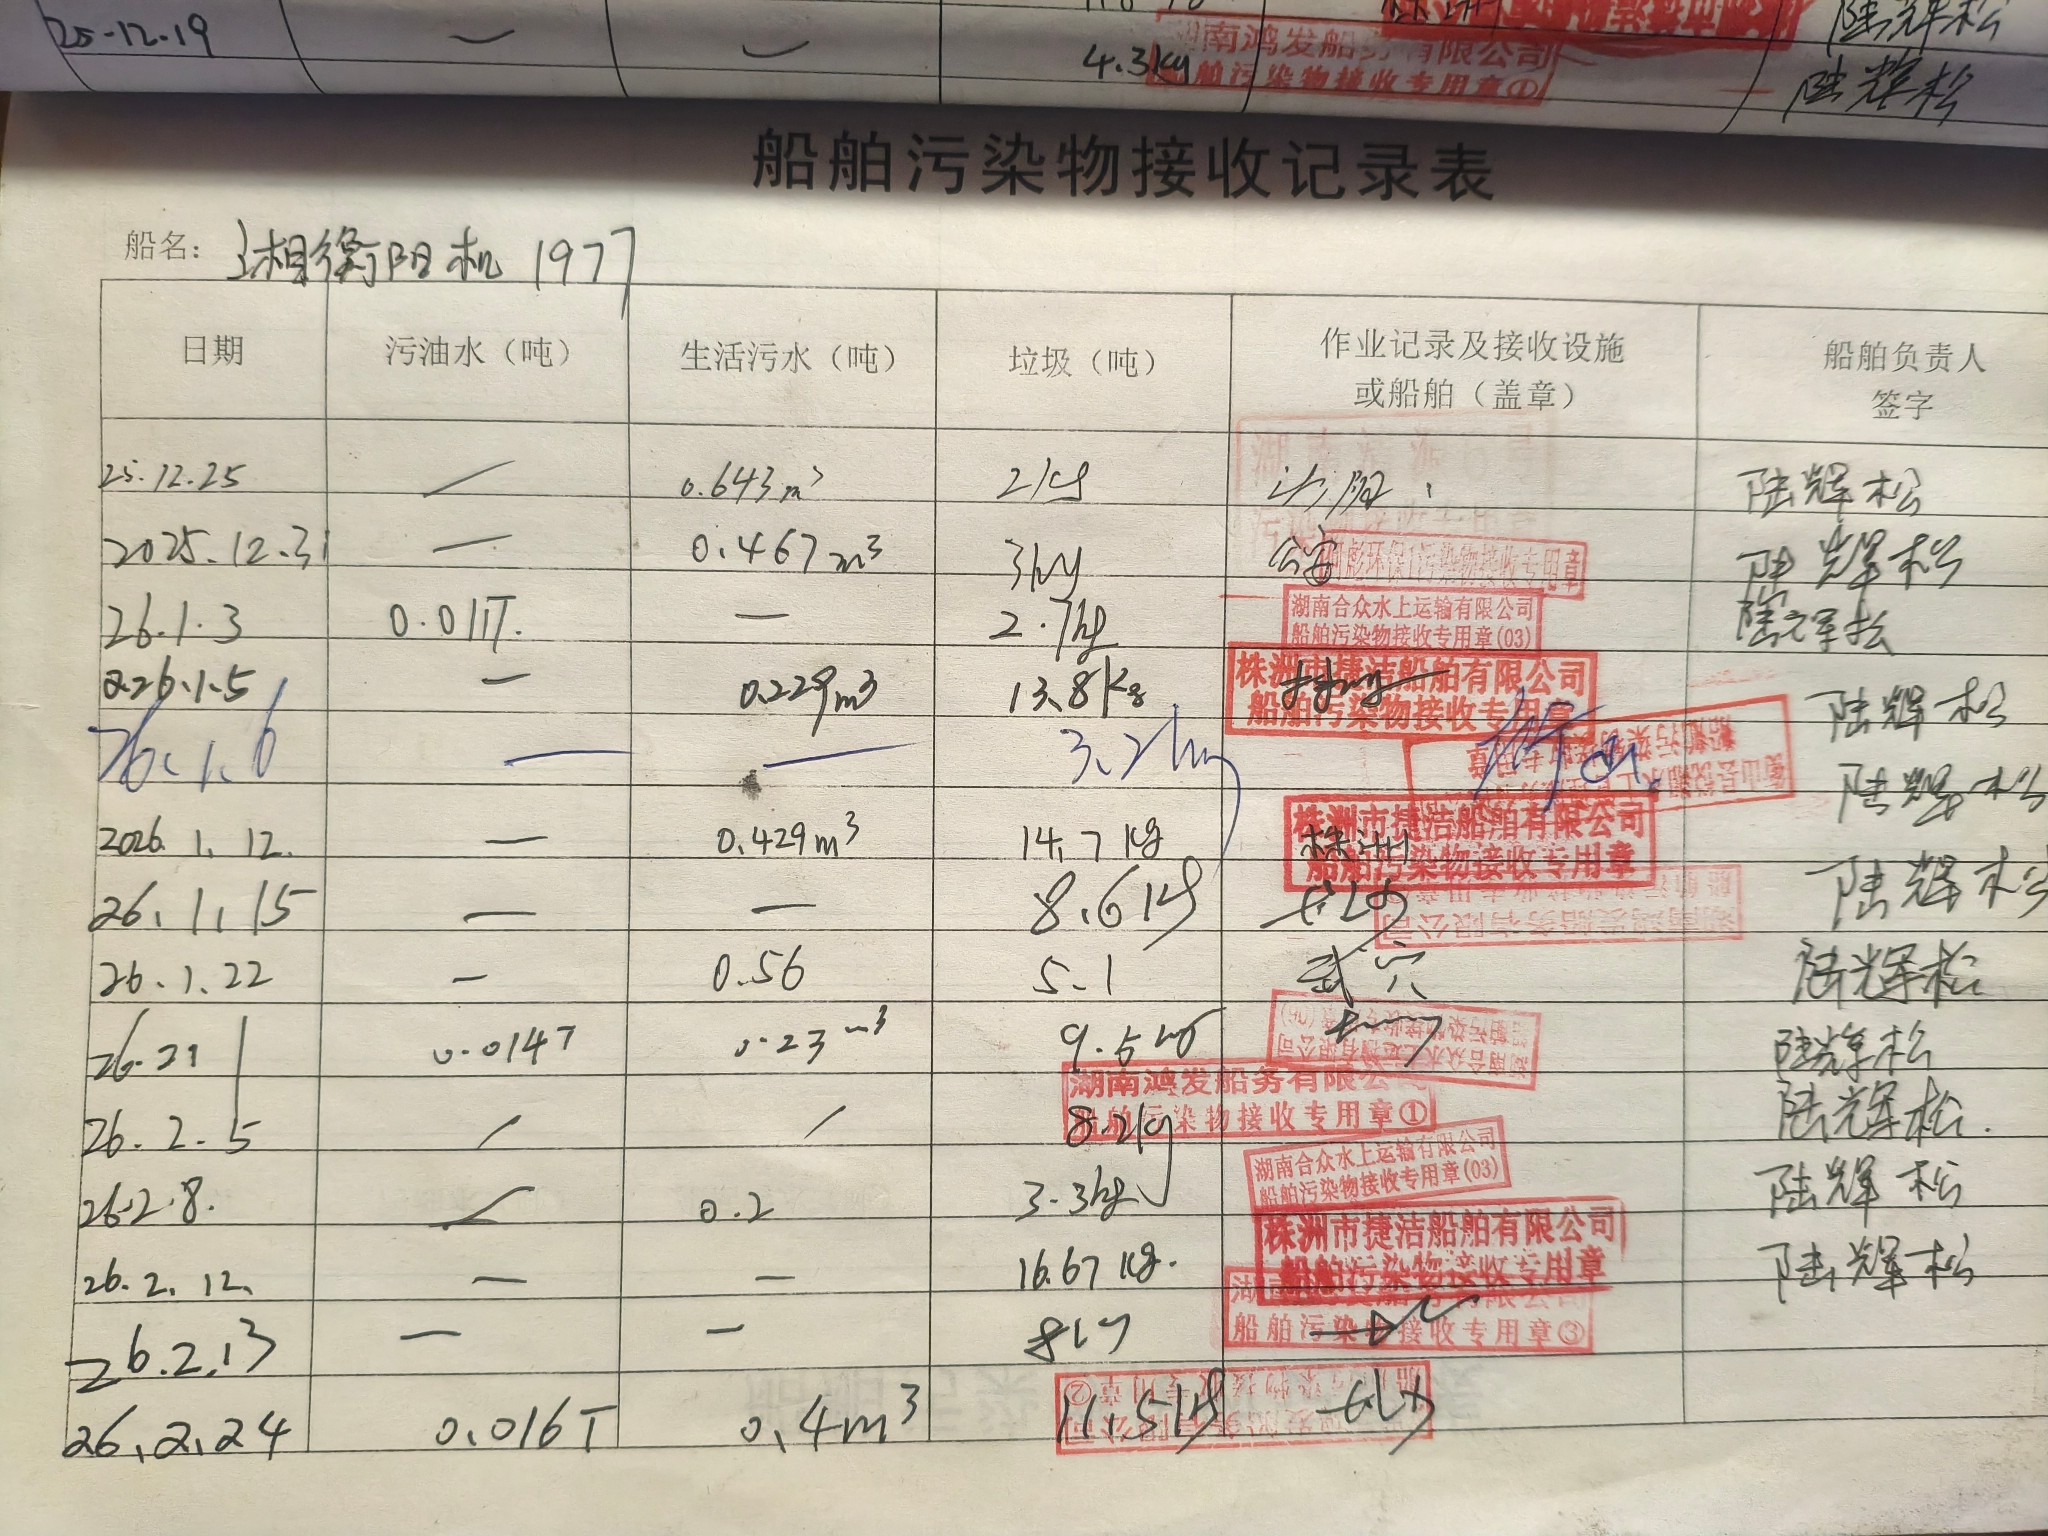 25-12-19 — — 4.3kg 湖南鸿发船务有限公司 陆辉松
船舶污染物接收专用章① 陆辉松
船舶污染物接收记录表
船名: 湘衡阳机 1977
日期 污油水(吨) 生活污水(吨) 垃圾(吨) 作业记录及接收设施 船舶负责人
或船舶(盖章) 签字
25.12.25 — 0.643m³ 2kg 陆辉松
2025.12.31 — 0.467m³ 3kg 环保 污染物接收专用章 陆辉松
26.1.3 0.011T. — 2.7kg 湖南合众水上运输有限公司 陆辉松
船舶污染物接收专用章(03)
26.1.5 — 0.229m³ 13.8Kg 株洲市捷洁船舶有限公司 陆辉松
船舶污染物接收专用章
26.1.6 — — 3.2kg 陆辉松
2026.1.12. — 0.429m³ 14.7kg 株洲 株洲市捷洁船舶有限公司 陆辉松
船舶污染物接收专用章
26.1.15 — — 8.6kg 湖南鸿发船务有限公司 陆辉松
26.1.22 — 0.56 5.1 武穴
26.2.1 0.014T 0.23m³ 9.5kg 湖南合众水上运输有限公司 陆辉松
湖南鸿发船务有限公
26.2.5 / / 8.2kg 船舶污染物接收专用章① 陆辉松.
26.2.8. — 0.2 3.3kg 湖南合众水上运输有限公司 陆辉松
船舶污染物接收专用章(03)
26.2.12. — — 16.67kg. 株洲市捷洁船舶有限公司 陆辉松
船舶污染物接收专用章
26.2.13 — — 8kg 船舶污染物接收专用章③
26.2.24 0.016T 0.4m³ 11.5kg